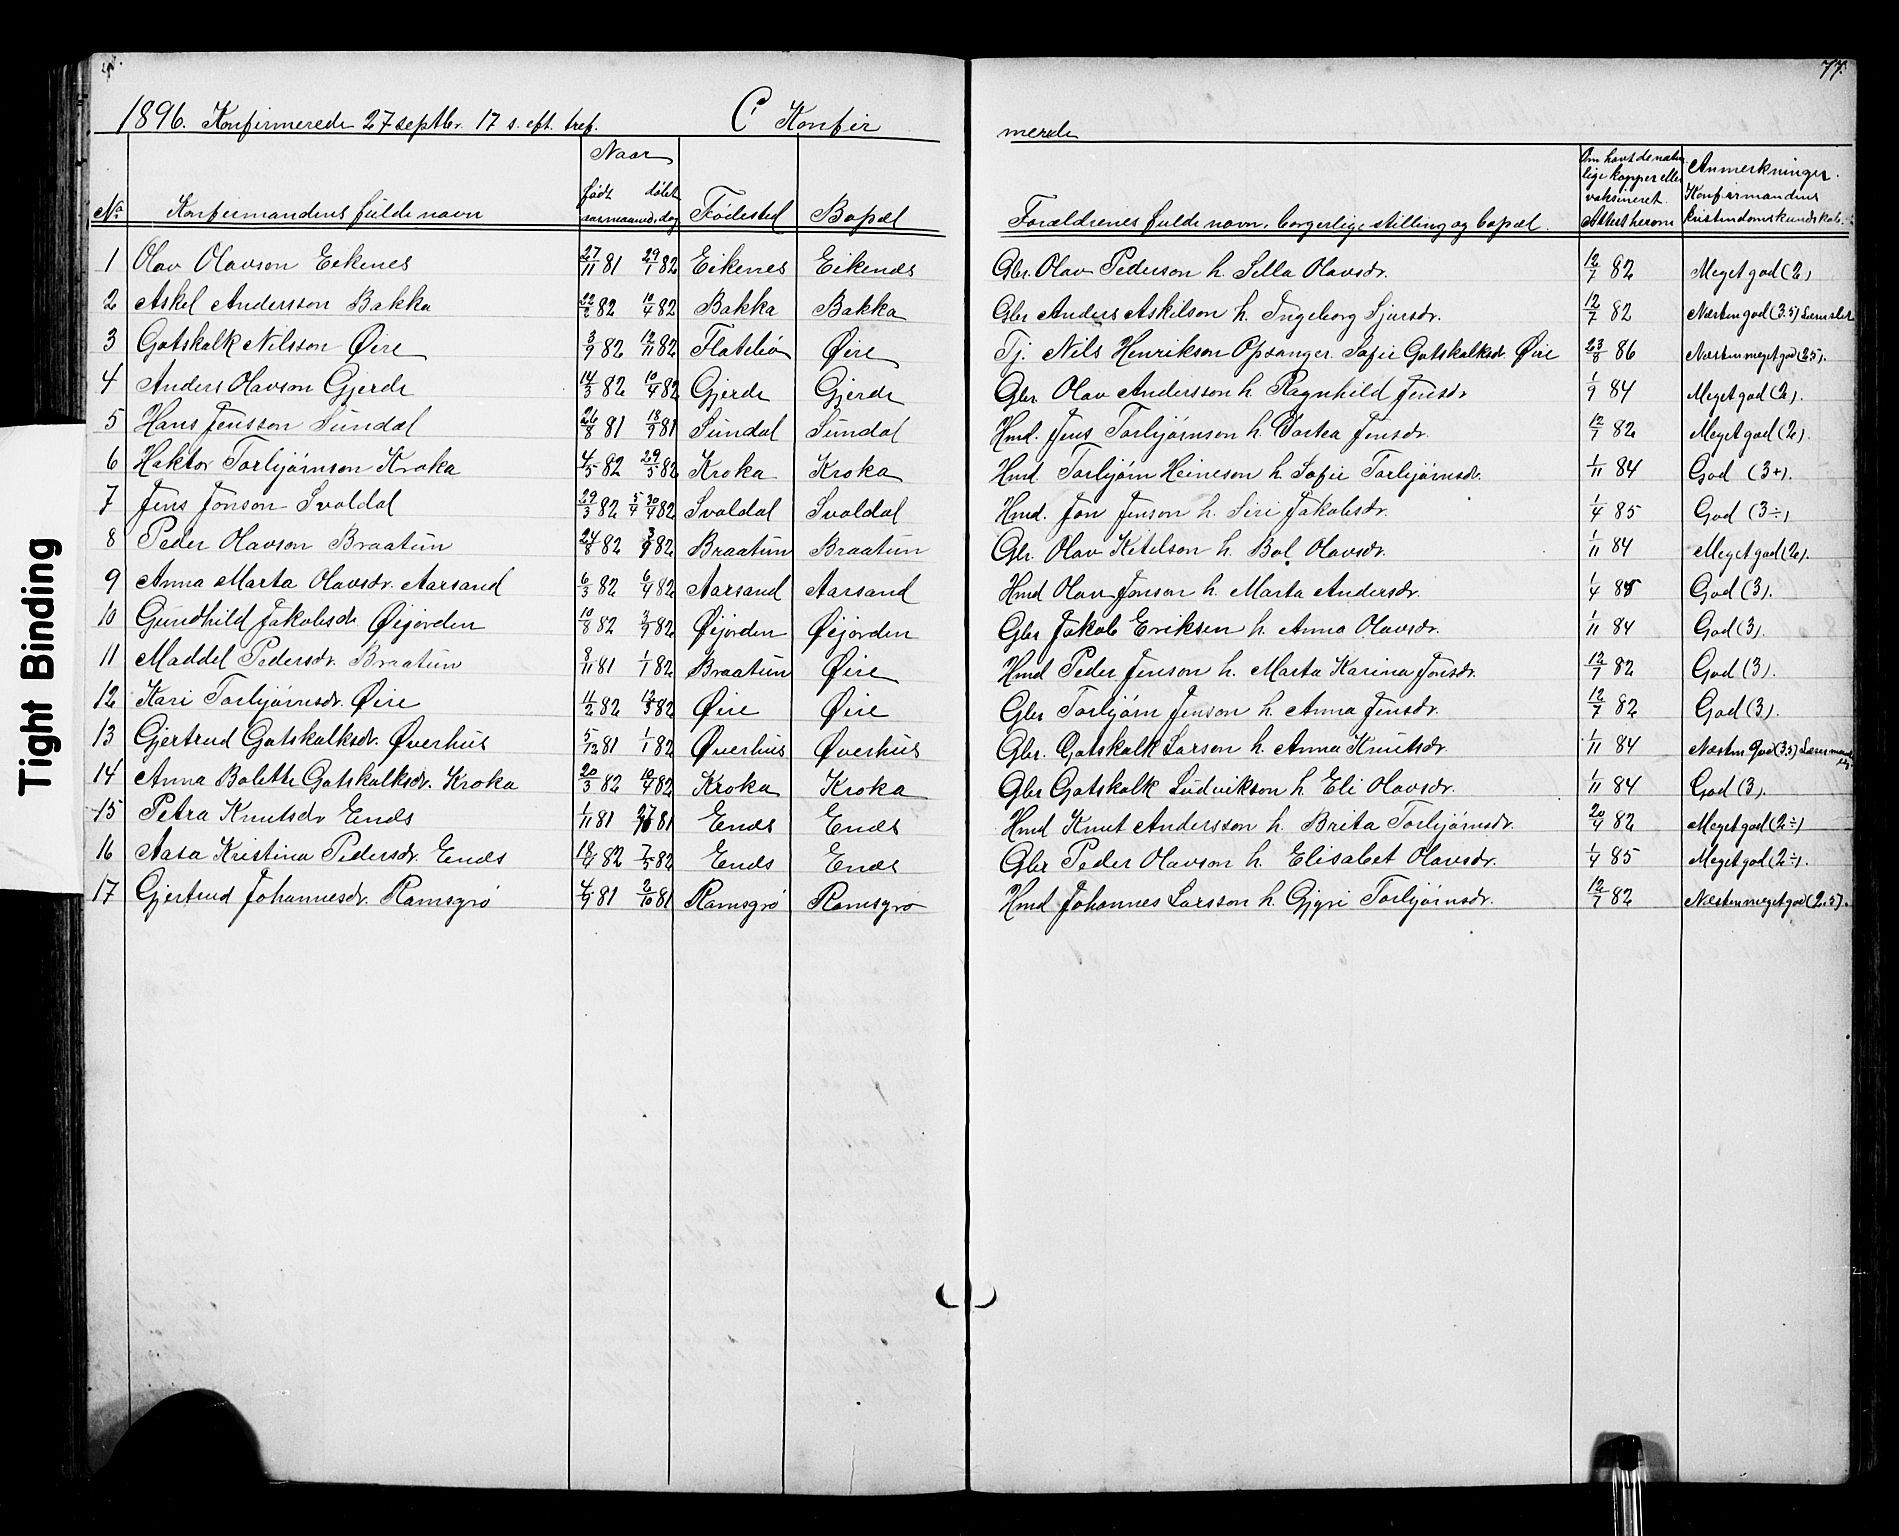 77.
1896. Konfirmerede 27 septbr. 17 s. eft. tref. C Konfir
merede
No. Konfirmandens fulde navn Naar født døbt aar maaned, dag Fødested Bopæl
Forældrenes fulde navn, borgerlige stilling og bopæl. Om havt de naturlige kopper eller vaksineret. Attest herom Anmerkninger. Konfirmandens kristendomskundskab.
1 Olav Olavson Eikenes 27/11 81 29/1 82 Eikenes Eikenes Gbr. Olav Pederson h. Sella Olavsdr. 12/7 82 Meget god (2)
2 Askel Andersson Bakka 22/2 82 10/4 82 Bakka Bakka Gbr Anders Askilson h. Ingeborg Sjursdr. 12/7 82 Næsten god (3.5)
3 Gotskalk Nilsson Øire 3/9 82 12/11 82 Flatebø Øire Tj. Nils Henrikson Opsanger. Sofie Gotskalksdr. Øire 23/8 86 Næsten meget god (2.5).
4 Anders Olavson Gjerde 14/3 82 10/4 82 Gjerde Gjerde Gbr Olav Andersson h. Ragnhild Jensdr 1/9 84 Meget god (2).
5 Hans Jensson Sundal 26/8 81 18/9 81 Sundal Sundal Hmd. Jens Torbjørnson h. Dortea Jensdr. 12/7 82 Meget god (2).
6 Haktor Torbjørnson Kroka 4/5 82 29/5 82 Kroka Kroka Hmd. Torbjørn Heineson h. Sofie Torbjørnsdr. 1/11 84 God (3+).
7 Jens Jonson Svoldal 29/3 82 5/4 20/4 82 Svoldal Svoldal Hmd. Jon Jenson h. Siri Jakobsdr. 1/4 85 God (3÷)
8 Peder Olavson Braatun 24/8 82 3/9 82 Braatun Braatun Gbr. Olav Ketilson h. Bol Olavsdr. 1/11 84 Meget god (2).
9 Anna Marta Olavsdr. Aarsand 6/3 82 6/4 82 Aarsand Aarsand Hmd Olav Jonson h. Marta Andersdr. 1/4 85 God (3).
10 Gundhild Jakobsdr Øijorden 10/8 82 3/9 82 Øijorden Øijorden Gbr Jakob Eriksen h. Anna Olavsdr. 1/11 84 God (3).
11 Maddel Pedersdr. Braatun 8/11 81 1/1 82 Braatun Øire Hmd Peder Jenson h. Marta Karina Jonsdr. 12/7 82 God (3).
12 Kari Torbjørnsdr. Øire 11/2 82 12/3 82 Øire Øire Gbr Torbjørn Jenson h. Anna Jensdr. 12/7 82 God (3).
13 Gjertrud Gotskalksdr. Øverhus 5/12 81 1/1 82 Øverhus Øverhus Gbr. Gotskalk Larson h. Anna Knutsdr. 1/11 84 Næsten God (3.5)
14 Anna Bolette Gotskalksdr. Kroka 20/3 82 10/4 82 Kroka Kroka Gbr Gotskalk Ludvikson h. Eli Olavsdr. 1/11 84 God (3).
15 Petra Knutsdr Ænes 1/11 81 81 Ænes Ænes Hmd Knut Andersson h. Brita Torbjørnsdr. 20/9 82 Meget god (2÷)
16 Aasa Kristina Pedersdr. Ænes 18/4 82 7/5 82 Ænes Ænes Gbr Peder Olavson h. Elisabet Olavsdr. 1/4 85 Meget god (2÷).
17 Gjertrud Johannesdr. Ramsgrø 4/9 81 2/10 81 Ramsgrø Ramsgrø Hmd Johannes Larsson h. Gjyri Torbjørnsdr. 12/7 82 Næsten meget god (2.5).
Tight Binding